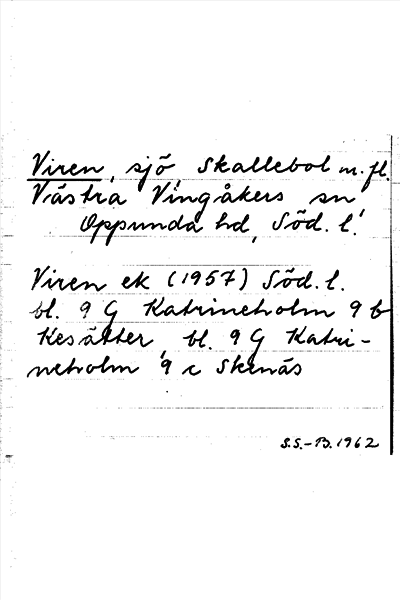 Viren, sjö, Skallebol m.fl.
Västra Vingåkers sn
Oppunda hd, Söd. l.
Viren ek (1957) Söd. l.
bl. 9 G Katrineholm 9 b
Kesätter, bl. 9 G Katri-
neholm 9 c Skenäs
S.S.-B. 1962